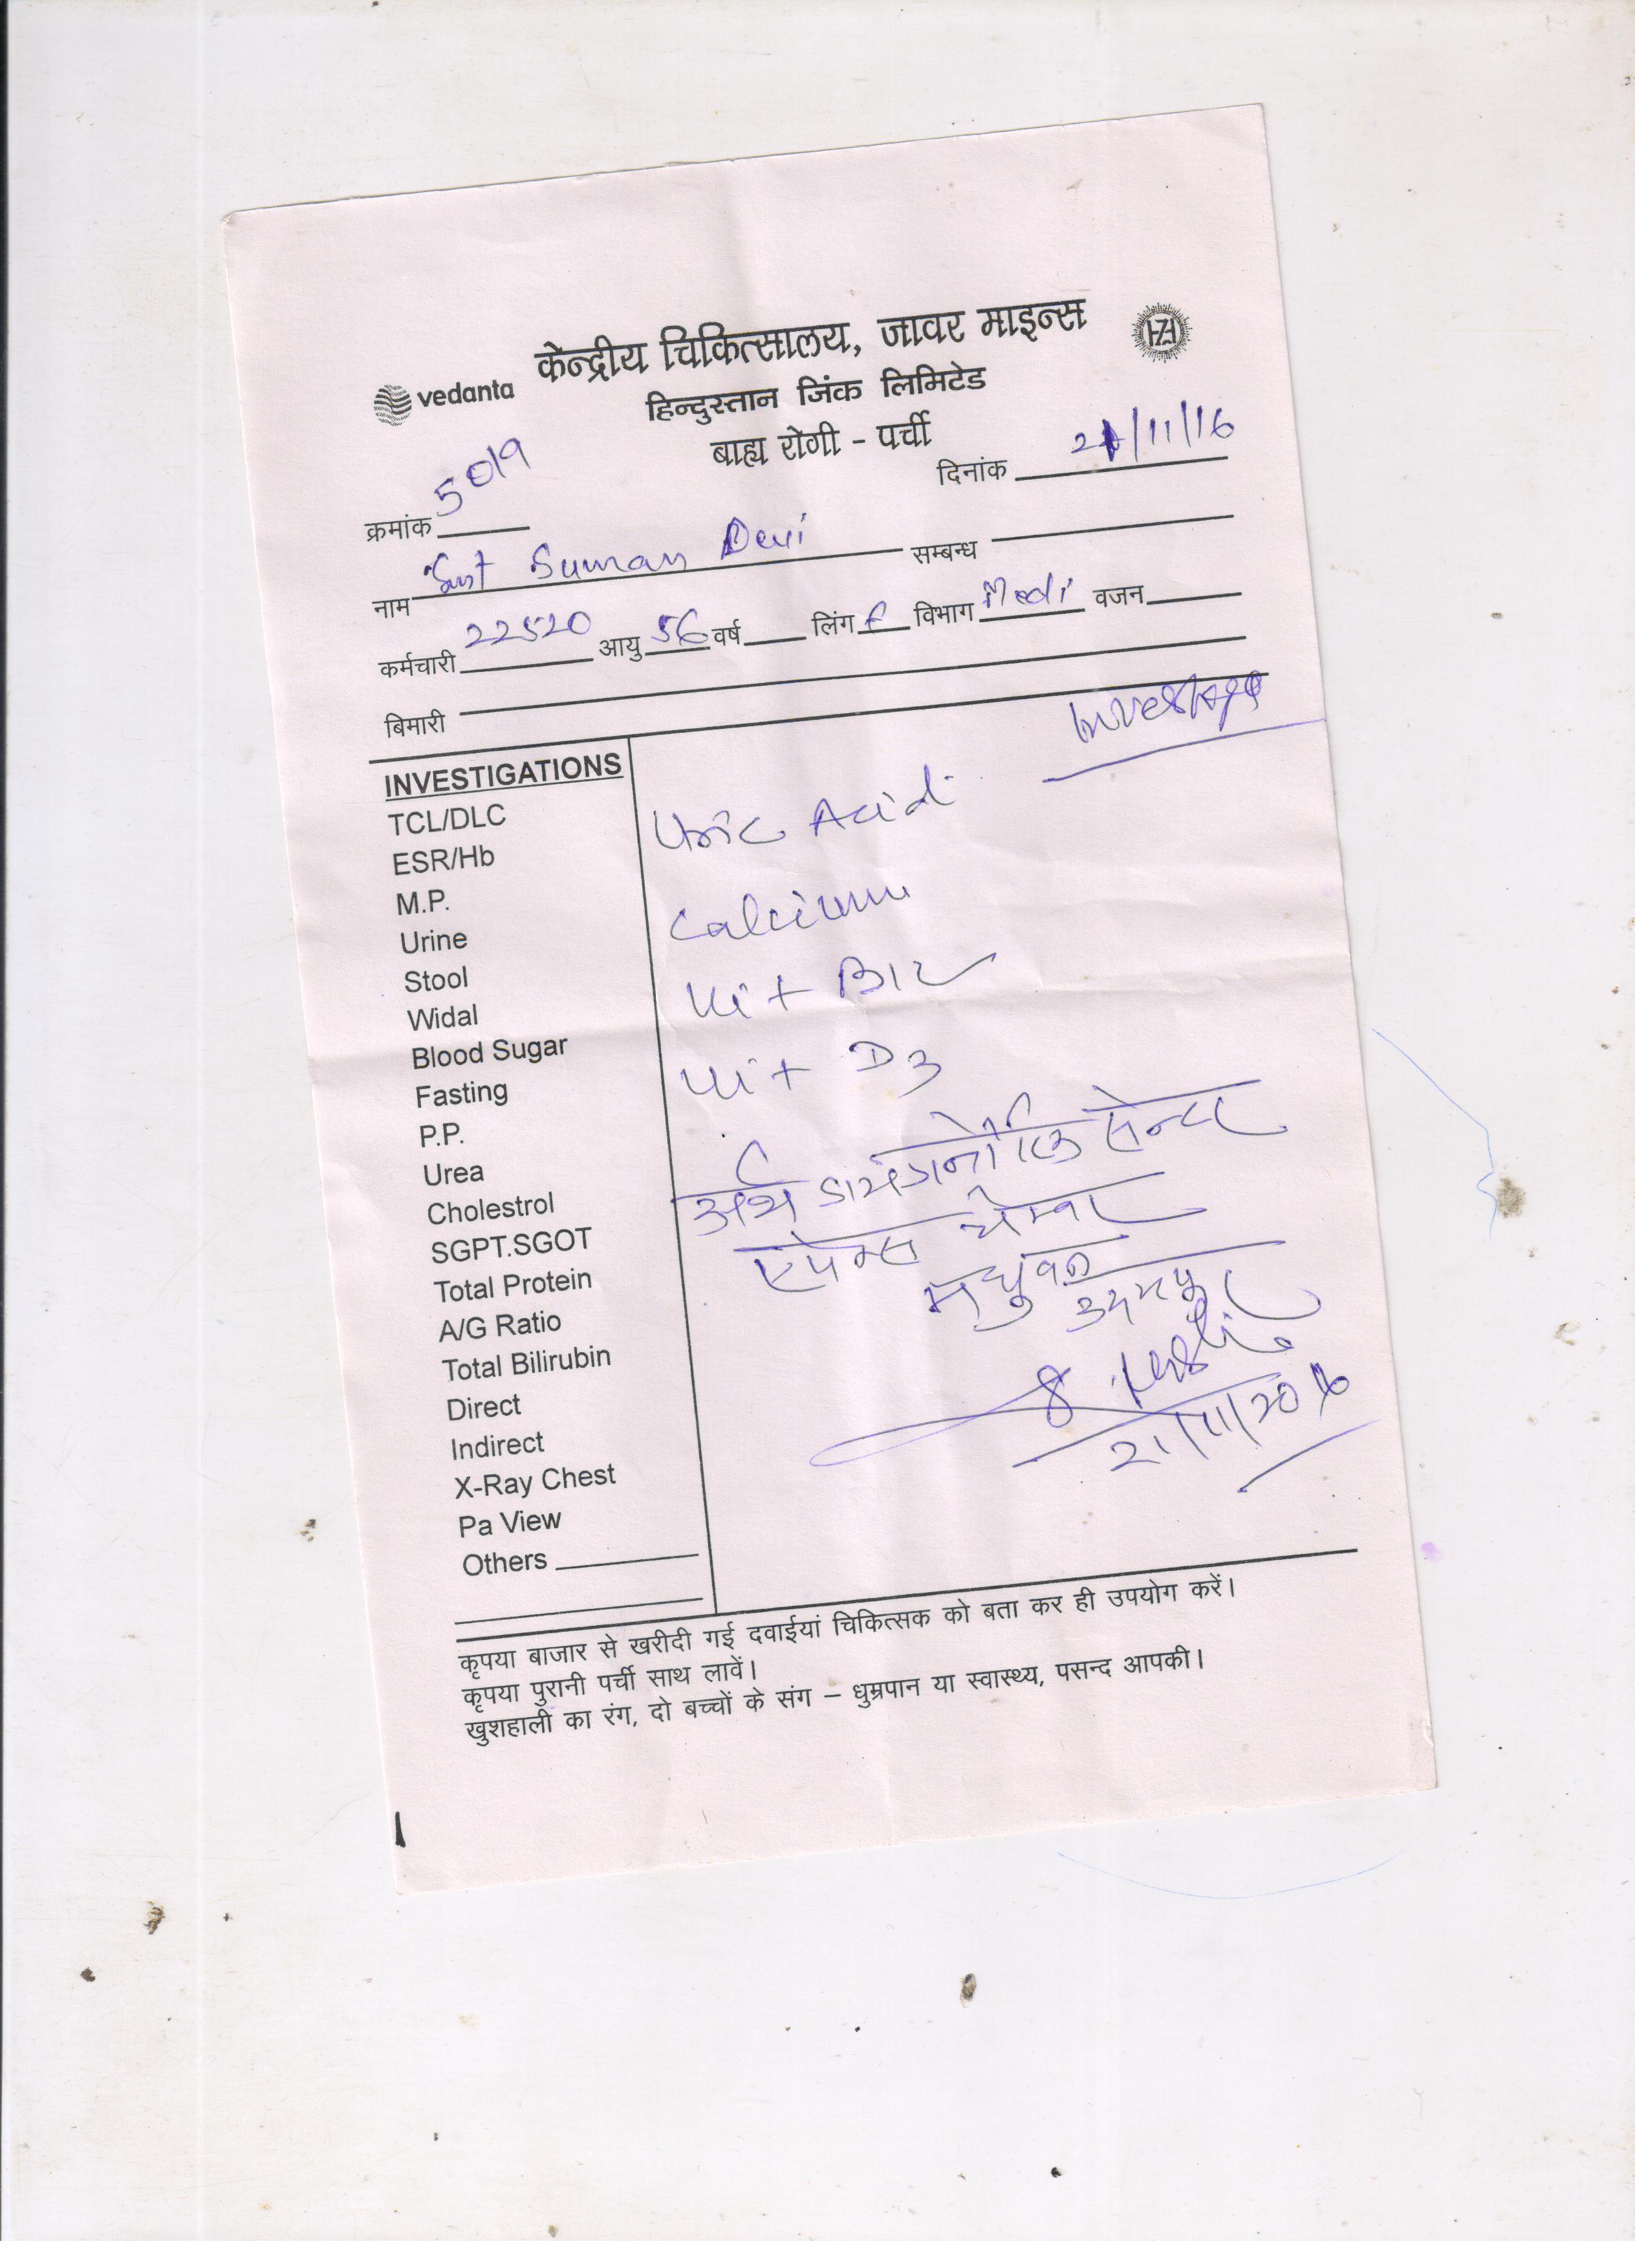 केन्द्रीय चिकित्सालय, जावर माइन्स
vedanta
हिन्दुस्तान जिंक लिमिटेड
बाह्य रोगी - पर्ची
दिनांक 21/11/16
क्रमांक 5019
नाम Smt Suman Devi सम्बन्ध
कर्मचारी 22520 आयु 56 वर्ष लिंग F विभाग Medi वजन
बिमारी
INVESTIGATIONS
TCL/DLC
ESR/Hb
M.P.
Urine
Stool
Widal
Blood Sugar
Fasting
P.P.
Urea
Cholestrol
SGPT.SGOT
Total Protein
A/G Ratio
Total Bilirubin
Direct
Indirect
X-Ray Chest
Pa View
Others
Uric Acid
Calcium
Vit B12
Vit D3
अर्थ डायग्नोस्टिक सेन्टर
मधुवन
उदयपुर
21/11/2016
कृपया बाजार से खरीदी गई दवाईयां चिकित्सक को बता कर ही उपयोग करें।
कृपया पुरानी पर्ची साथ लावें।
खुशहाली का रंग, दो बच्चों के संग – धुम्रपान या स्वास्थ्य, पसन्द आपकी।